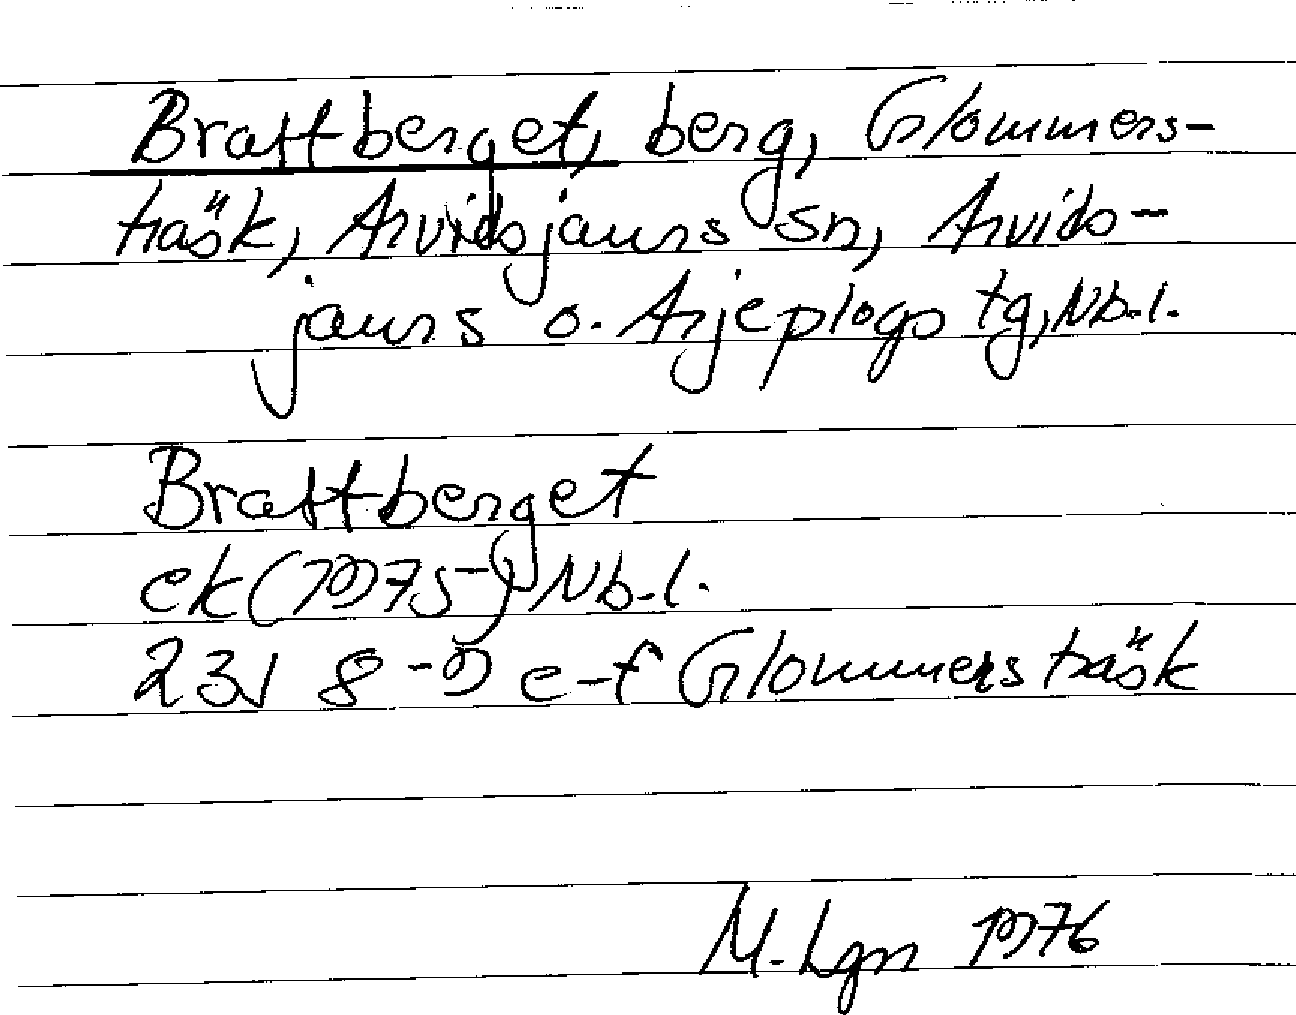 Brattberget, berg, Glommers-
träsk, Arvidsjaurs sn, Arvids-
jaurs o. Arjeplogs tg, Nb.l.
Brattberget
ek (1975) Nb.l.
23J 8-9 e-f Glommersträsk
M. Lgn 1976